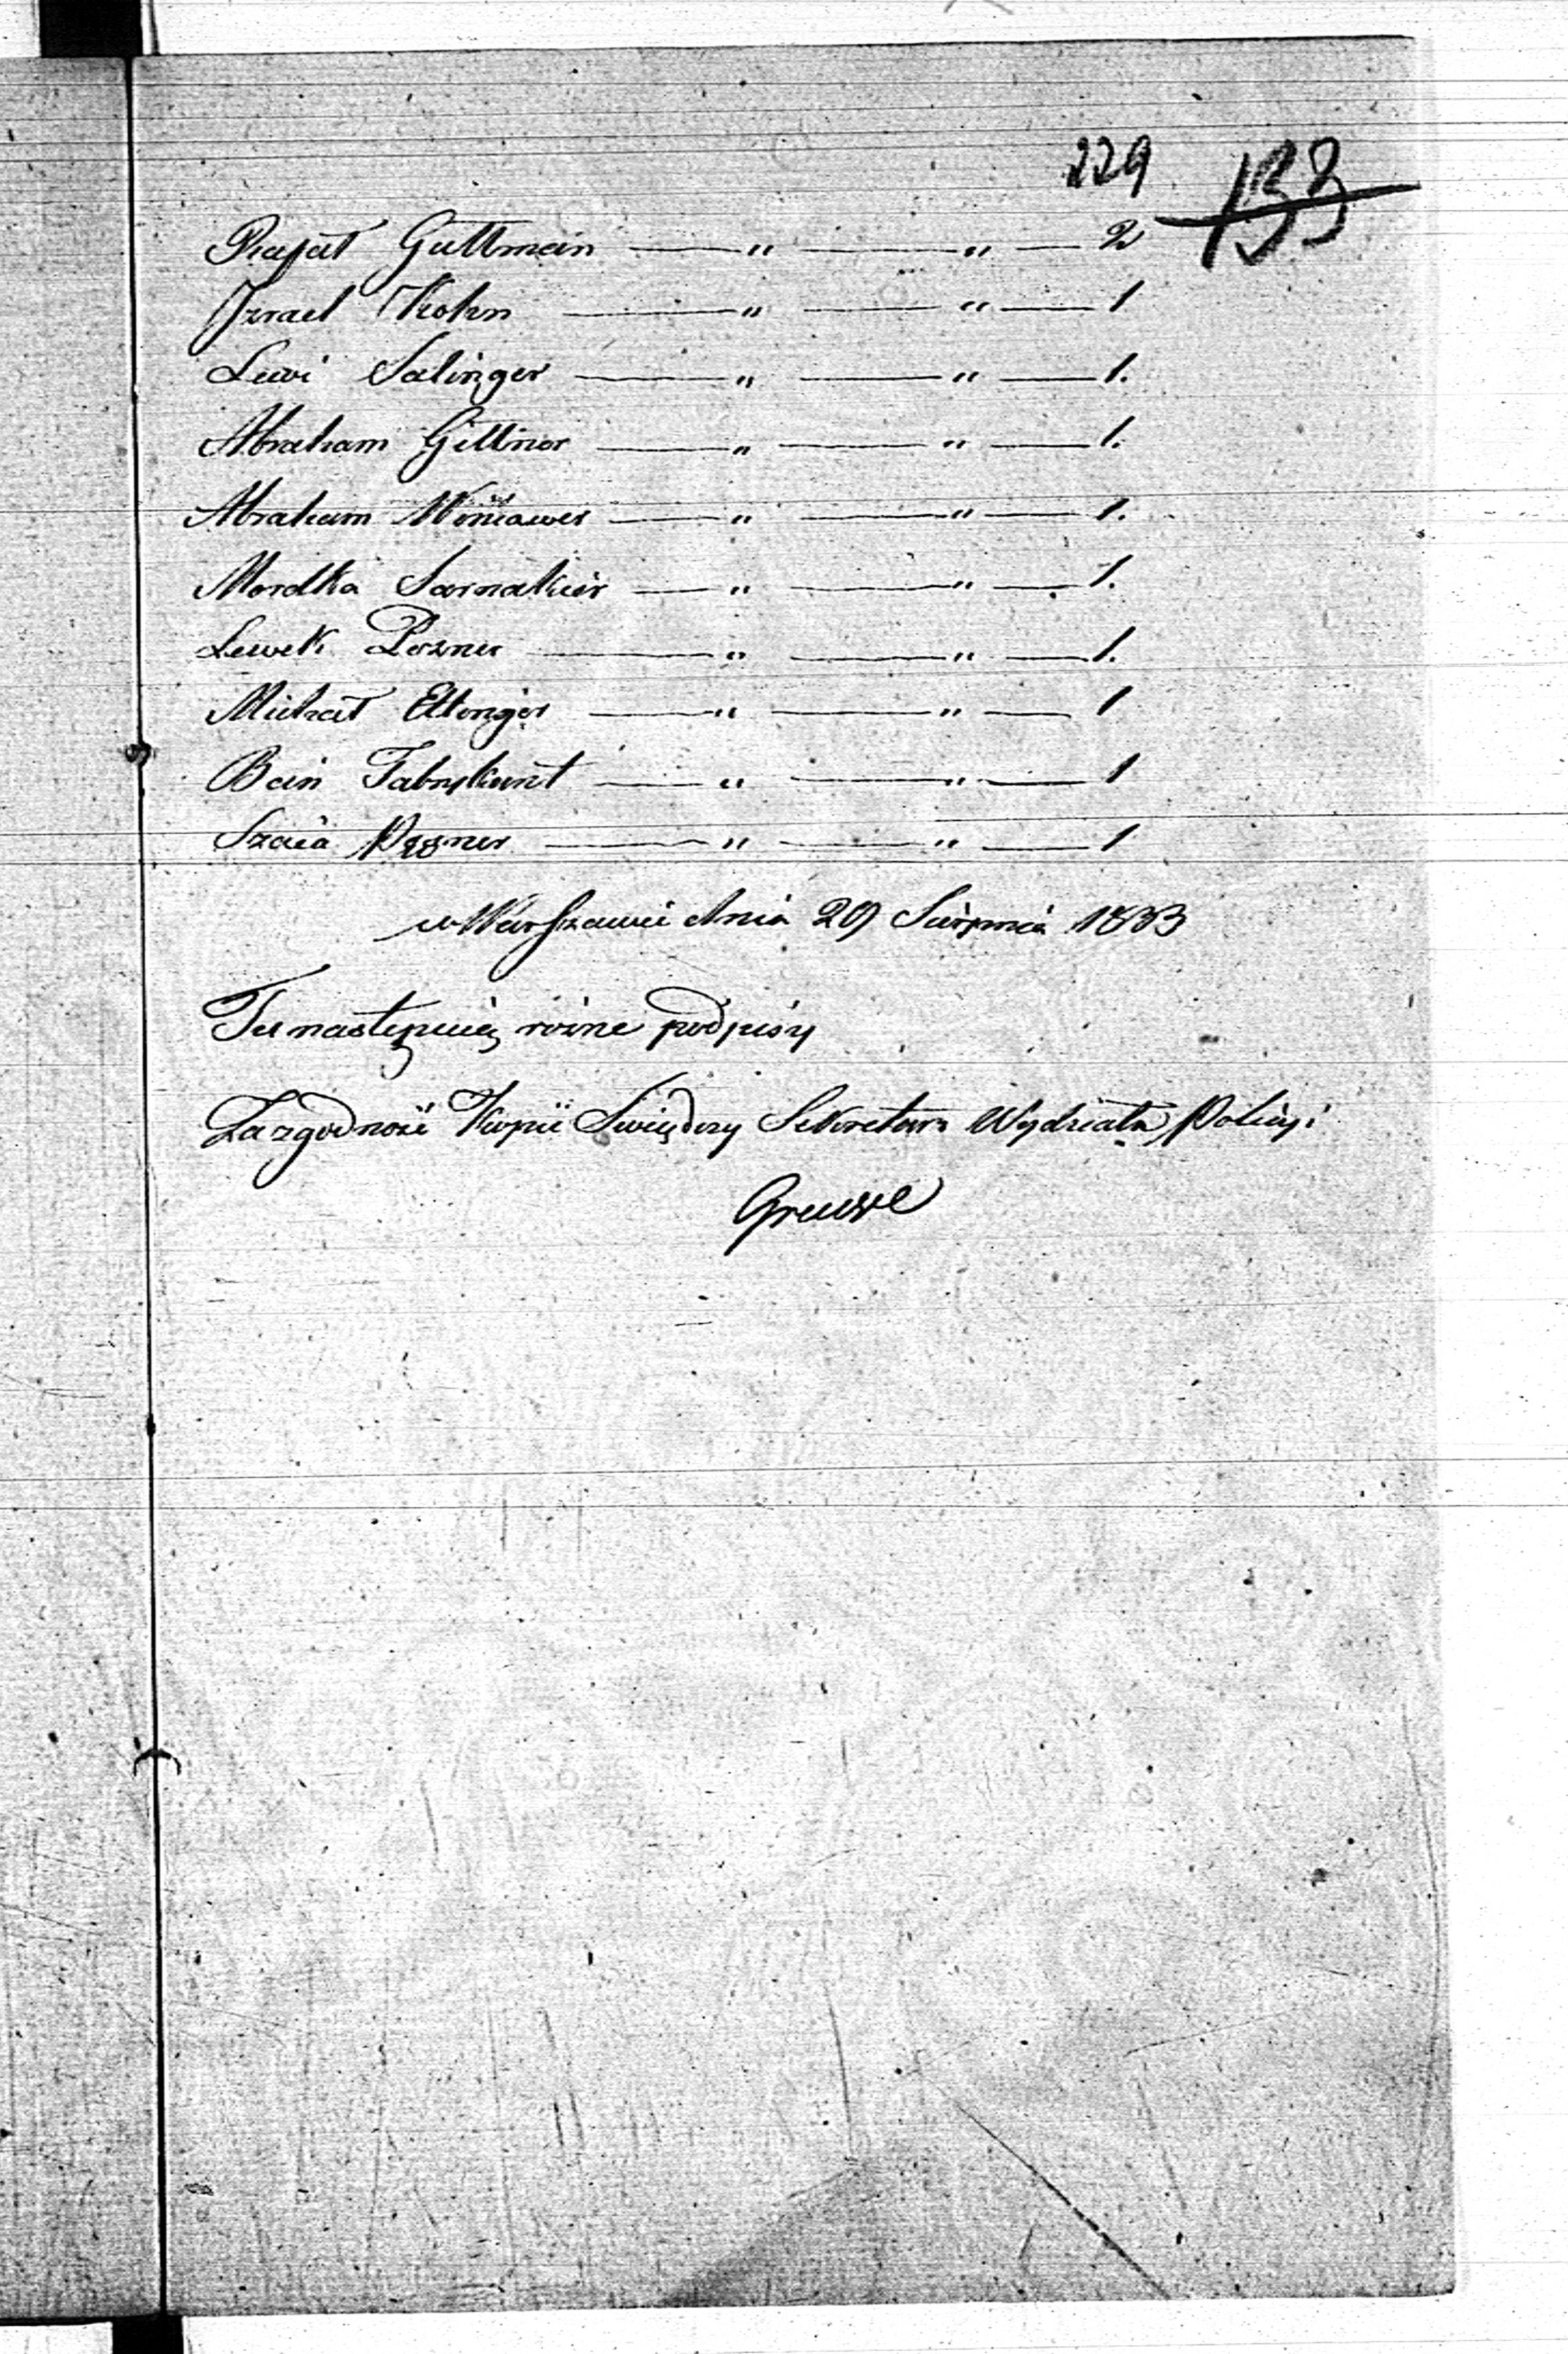 229 133
Rafał Guttman — " — " — 2
Izrael Kohn — " — " — 1
Lewi Salinger — " — " — 1.
Abraham Gittner — " — " — 1.
Abraham Winiawer — " — " — 1.
Mordka Sarnakier — " — " — 1.
Lewek Pozner — " — " — 1.
Michał Ettinger — " — " — 1
Bein — " — " — 1
Szaia Pozner — " — " — 1
w Warszawie dnia 29 Sierpnia 1833
Tu następuią rózne podpisy
Za zgodność Kopii Swiędczy Sekretarz Wydziału Policyi